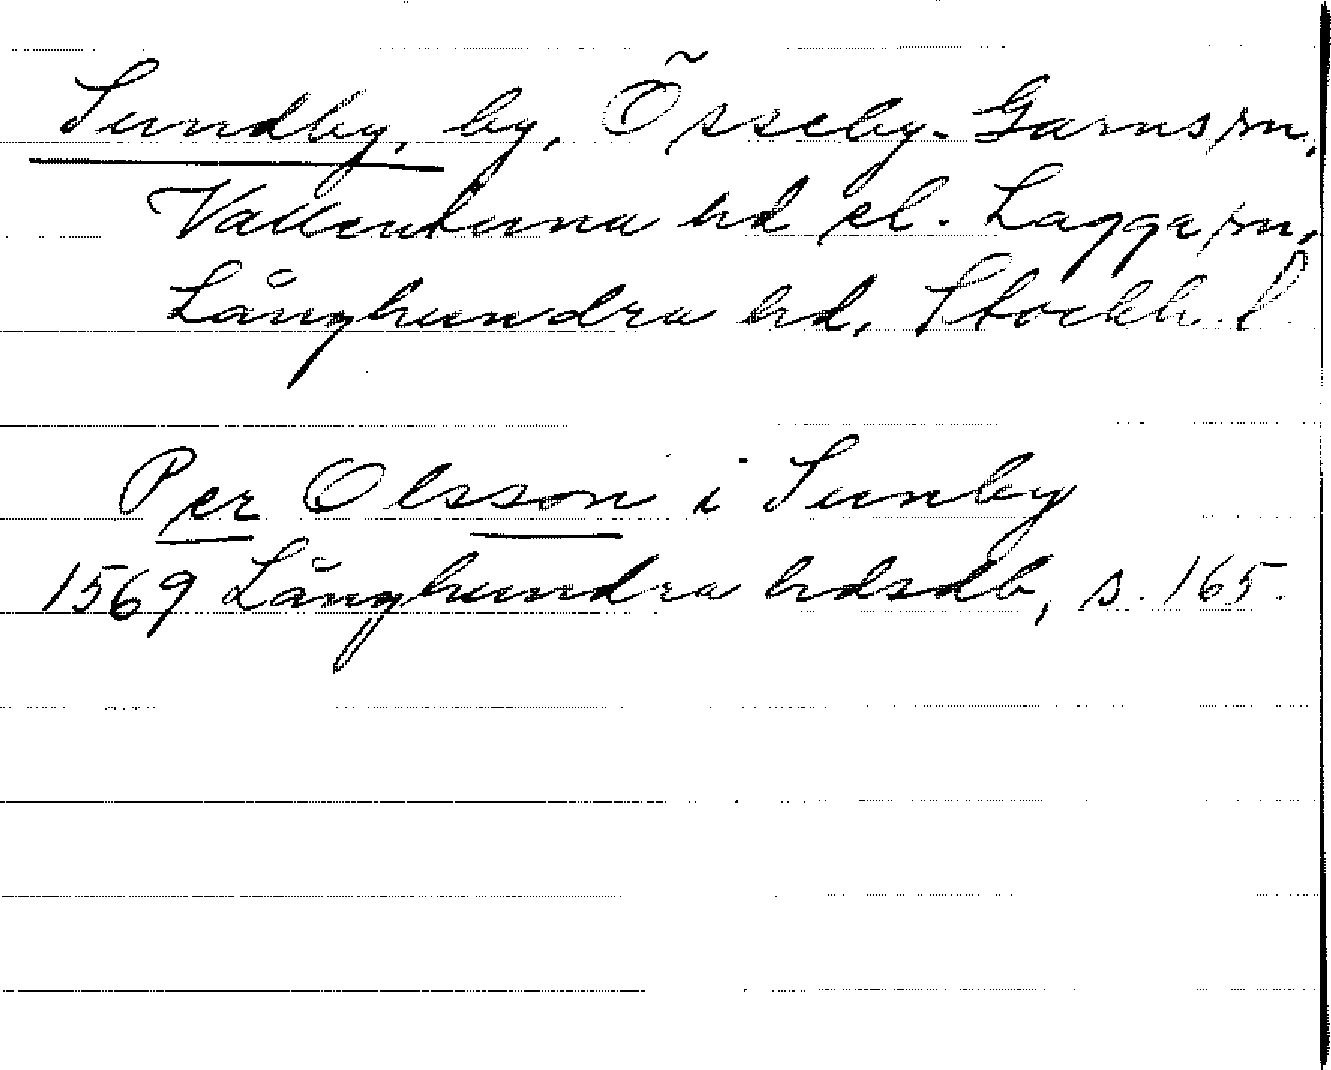 Sundby, by, Össeby-Garns sn,
Vallentuna hd el. Lagga sn,
Långhundra hd, Stockh. l
Per Olsson i Sunby
1569 Långhundra hdsdb, s. 165.